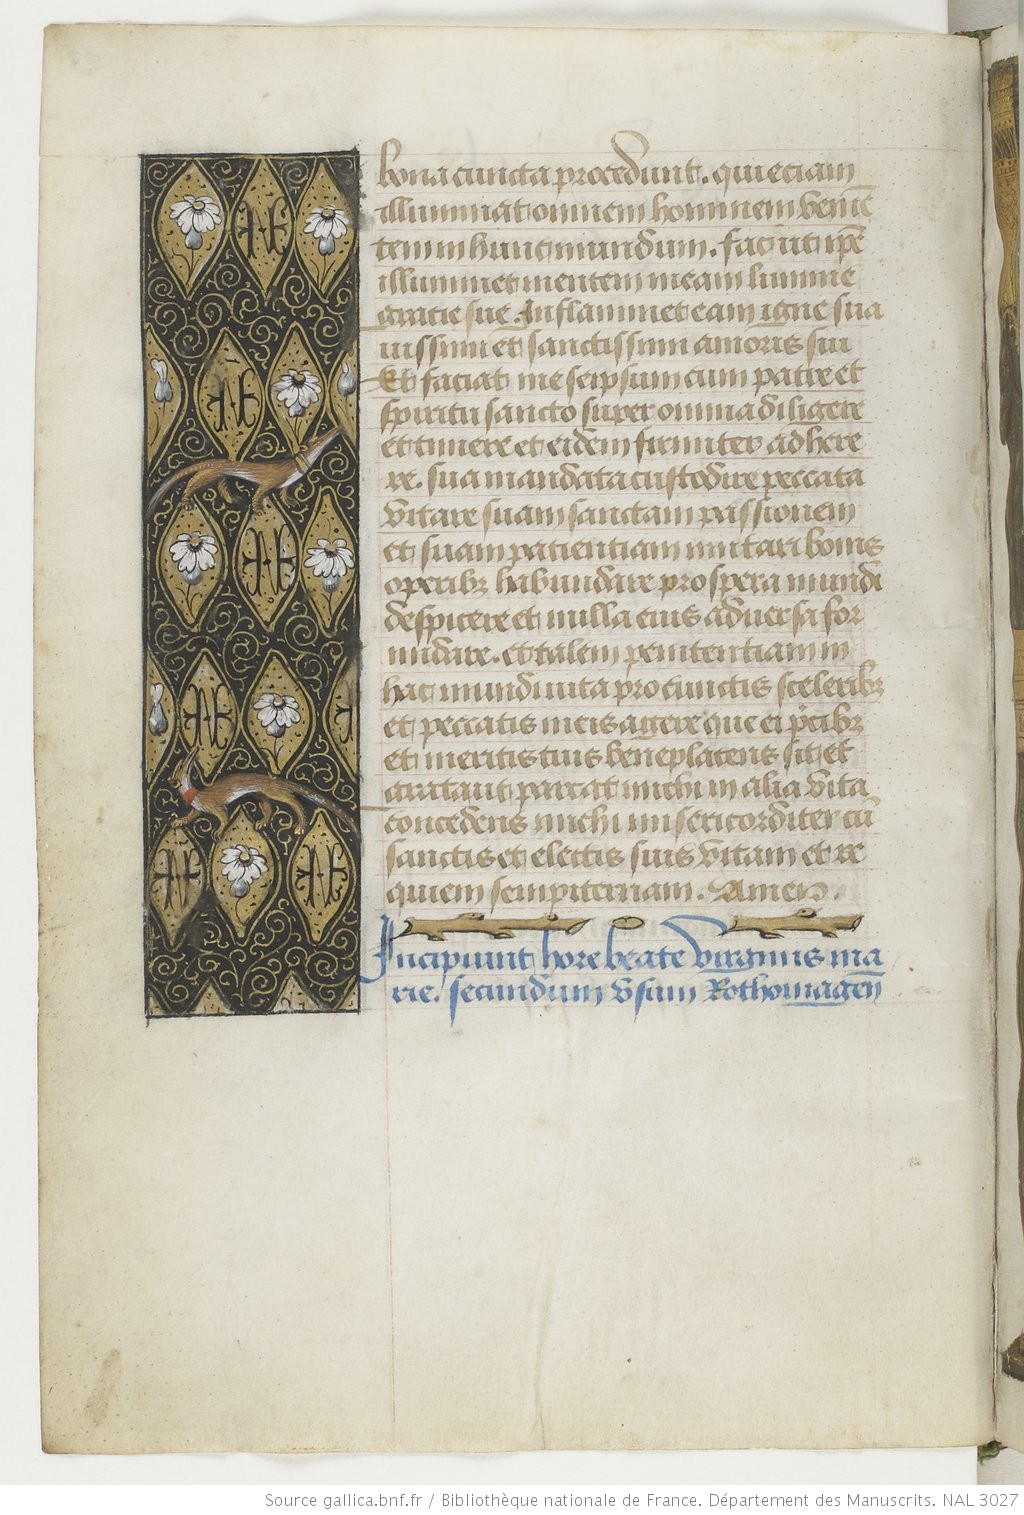 bona cuncta procedunt. qui eciam
illuminat omnem hominem veniē
tem in hunc mundum. faciat ip̄e
illuminet mentem meam lumine
gratie sue. Inflammet eam igne sua
uissimi et sanctissimi amoris sui
Et faciat me seipsum cum patre et
spiritu sancto super omnia diligere
et timere et eidem firmiter adhere
re. sua mandata custodire peccata
vitare suam sanctam passionem
et suam patientiam imitari bonis
operibꝫ habundare prospera mundi
despicere et nulla eius aduersa for
midare. et talem penitentiam in
hac mundi uita pro cunctis sceleribꝫ
et peccatis meis agere que ei p̄cibꝫ
et meritis tuis beneplacens sit et
michi in alia vita
concedens michi misericorditer cū
sanctis et electis suis vitam et re
quiem sempiternam. Amen.
Incipiunt hore beate virginis ma
rie. secundum vsum Rothomageñ
Source gallica.bnf.fr / Bibliothèque nationale de France. Département des Manuscrits. NAL 3027